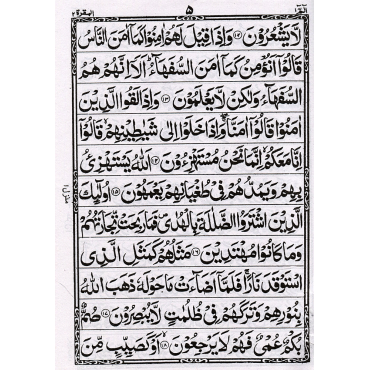 البقرة ٢
٥
الٓمّٓ ١
لَّا يَشْعُرُوْنَ ﴿١٢﴾ وَاِذَا قِيْلَ لَهُمْ اٰمِنُوْا كَمَآ اٰمَنَ النَّاسُ
قَالُوْٓا اَنُؤْمِنُ كَمَآ اٰمَنَ السُّفَهَآءُ ؕ اَلَآ اِنَّهُمْ هُمُ
السُّفَهَآءُ وَلٰكِنْ لَّا يَعْلَمُوْنَ ﴿١٣﴾ وَاِذَا لَقُوا الَّذِيْنَ
اٰمَنُوْا قَالُوْٓا اٰمَنَّا ۖۚ وَاِذَا خَلَوْا اِلٰى شَيٰطِيْنِهِمْ ۙ قَالُوْٓا
اِنَّا مَعَكُمْ ۙ اِنَّمَا نَحْنُ مُسْتَهْزِءُوْنَ ﴿١٤﴾ اَللّٰهُ يَسْتَهْزِئُ
بِهِمْ وَيَمُدُّهُمْ فِيْ طُغْيَانِهِمْ يَعْمَهُوْنَ ﴿١٥﴾ اُولٰٓئِكَ
الَّذِيْنَ اشْتَرَوُا الضَّلٰلَةَ بِالْهُدٰى ۪ فَمَا رَبِحَتْ تِّجَارَتُهُمْ
وَمَا كَانُوْا مُهْتَدِيْنَ ﴿١٦﴾ مَثَلُهُمْ كَمَثَلِ الَّذِي
اسْتَوْقَدَ نَارًا ۚ فَلَمَّآ اَضَآءَتْ مَا حَوْلَهٗ ذَهَبَ اللّٰهُ
بِنُوْرِهِمْ وَتَرَكَهُمْ فِيْ ظُلُمٰتٍ لَّا يُبْصِرُوْنَ ﴿١٧﴾ صُمٌّۢ
بُكْمٌ عُمْيٌ فَهُمْ لَا يَرْجِعُوْنَ ﴿١٨﴾ اَوْ كَصَيِّبٍ مِّنَ